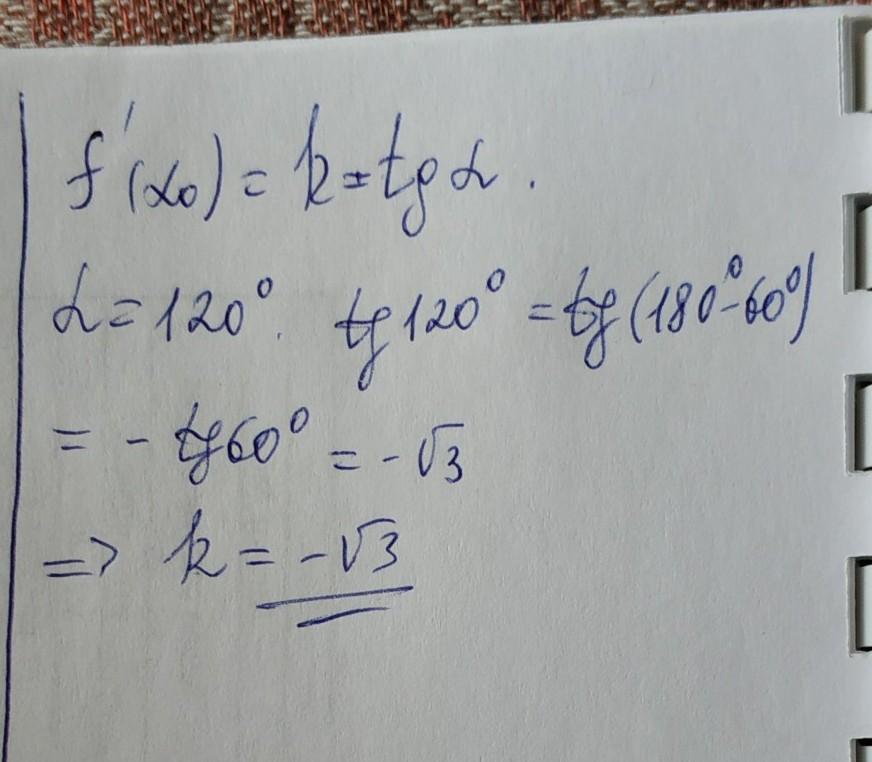 f'(x₀) = k = tg α.
α = 120°. tg 120° = tg (180° - 60°)
= - tg 60° = - √3
=> k = - √3